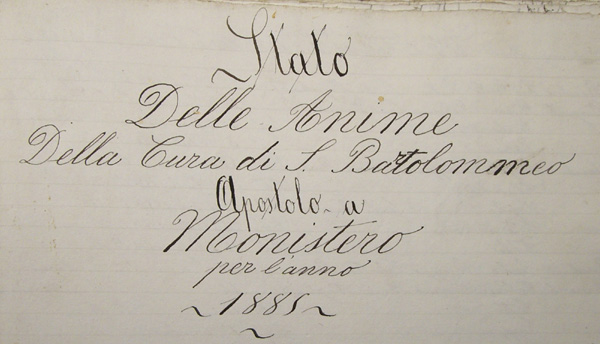 Stato
Delle Anime
Della Cura di S. Bartolommeo
Apostolo a
Monistero
per l'anno
~ 1885 ~
~